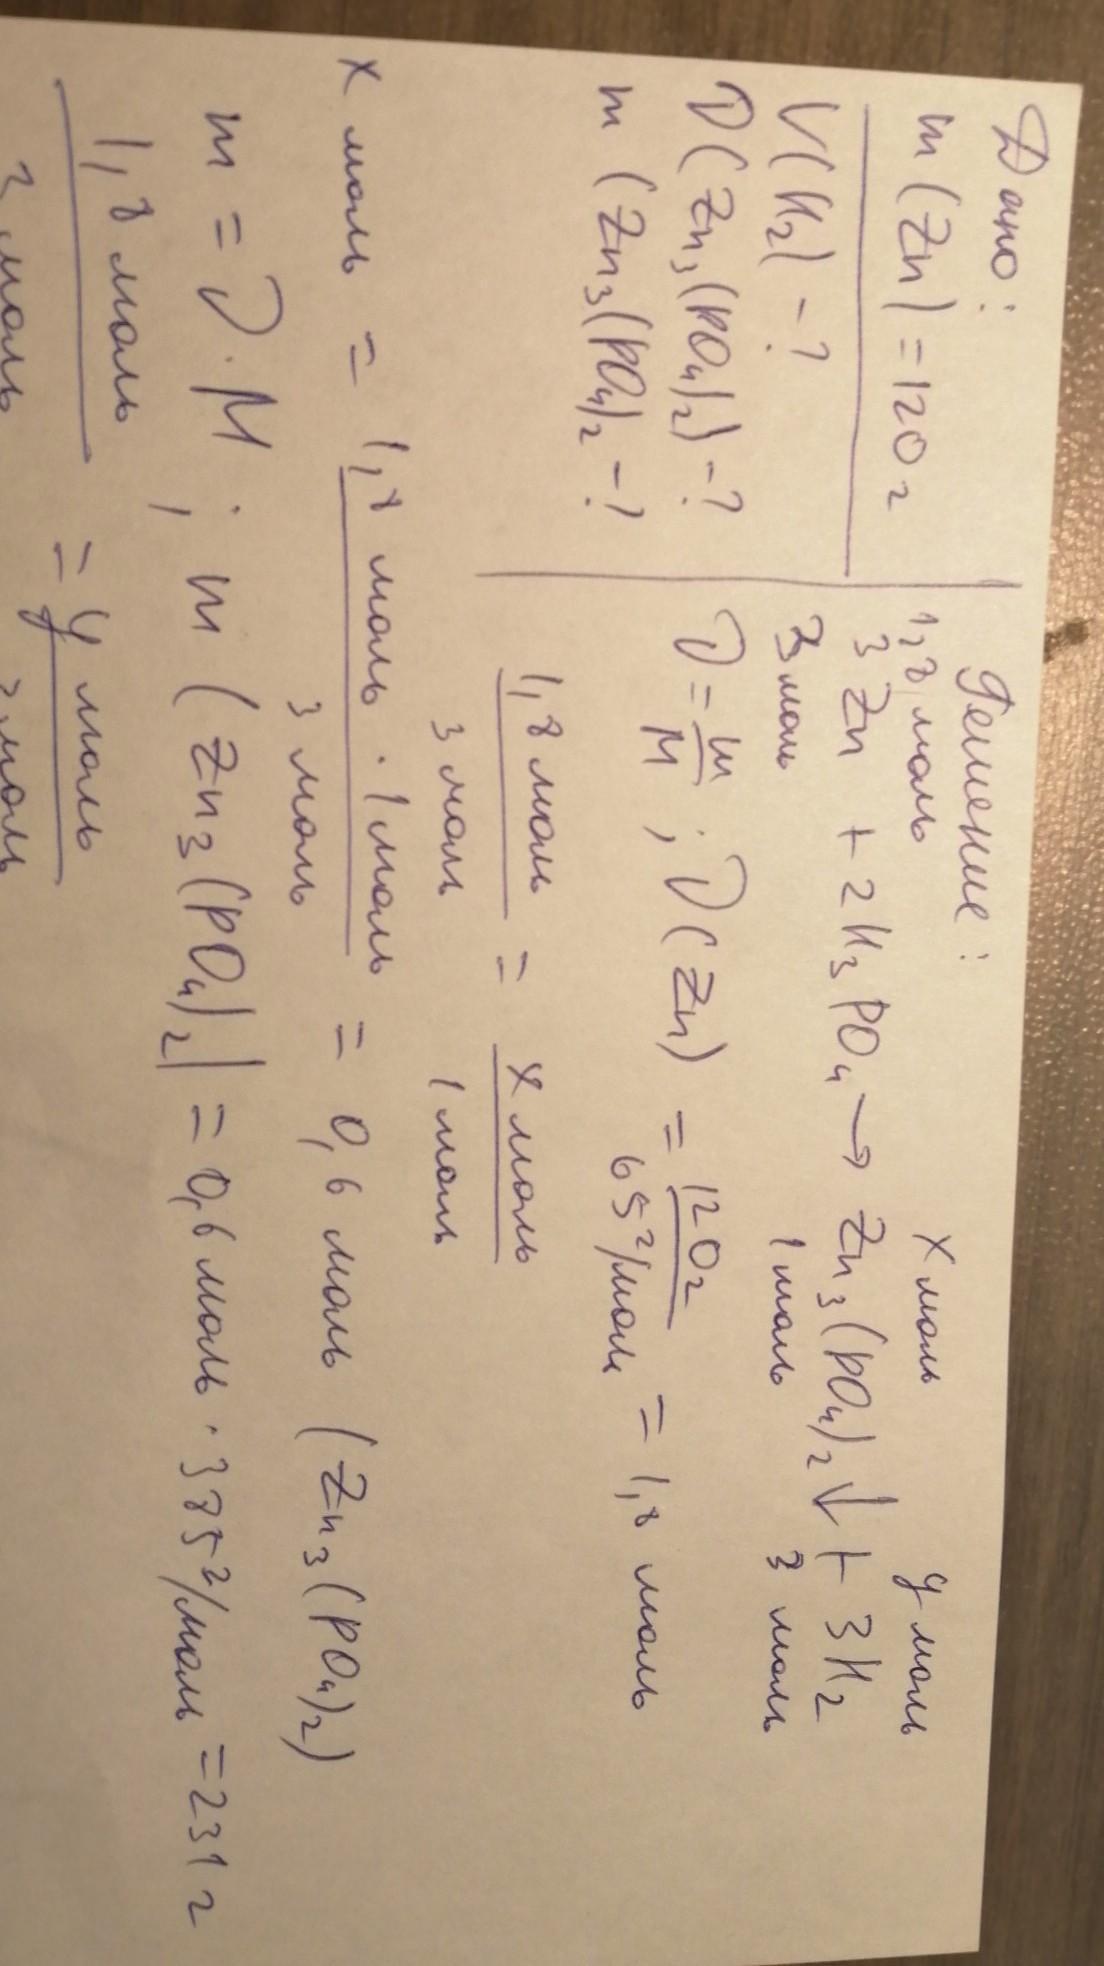 Дано:
m(Zn) = 120 г
V(H₂) - ?
ν(Zn₃(PO₄)₂) - ?
m(Zn₃(PO₄)₂ - ?
Решение:
1,8 моль x моль y моль
3Zn + 2H₃PO₄ → Zn₃(PO₄)₂↓ + 3H₂
3 моль 1 моль 3 моль
ν = m/M ; ν(Zn) = 120 г / 65 г/моль = 1,8 моль
1,8 моль / 3 моль = x моль / 1 моль
x моль = 1,8 моль · 1 моль / 3 моль = 0,6 моль (Zn₃(PO₄)₂)
m = ν · M ; m(Zn₃(PO₄)₂) = 0,6 моль · 385 г/моль = 231 г
1,8 моль / 3 моль = y моль / 3 моль